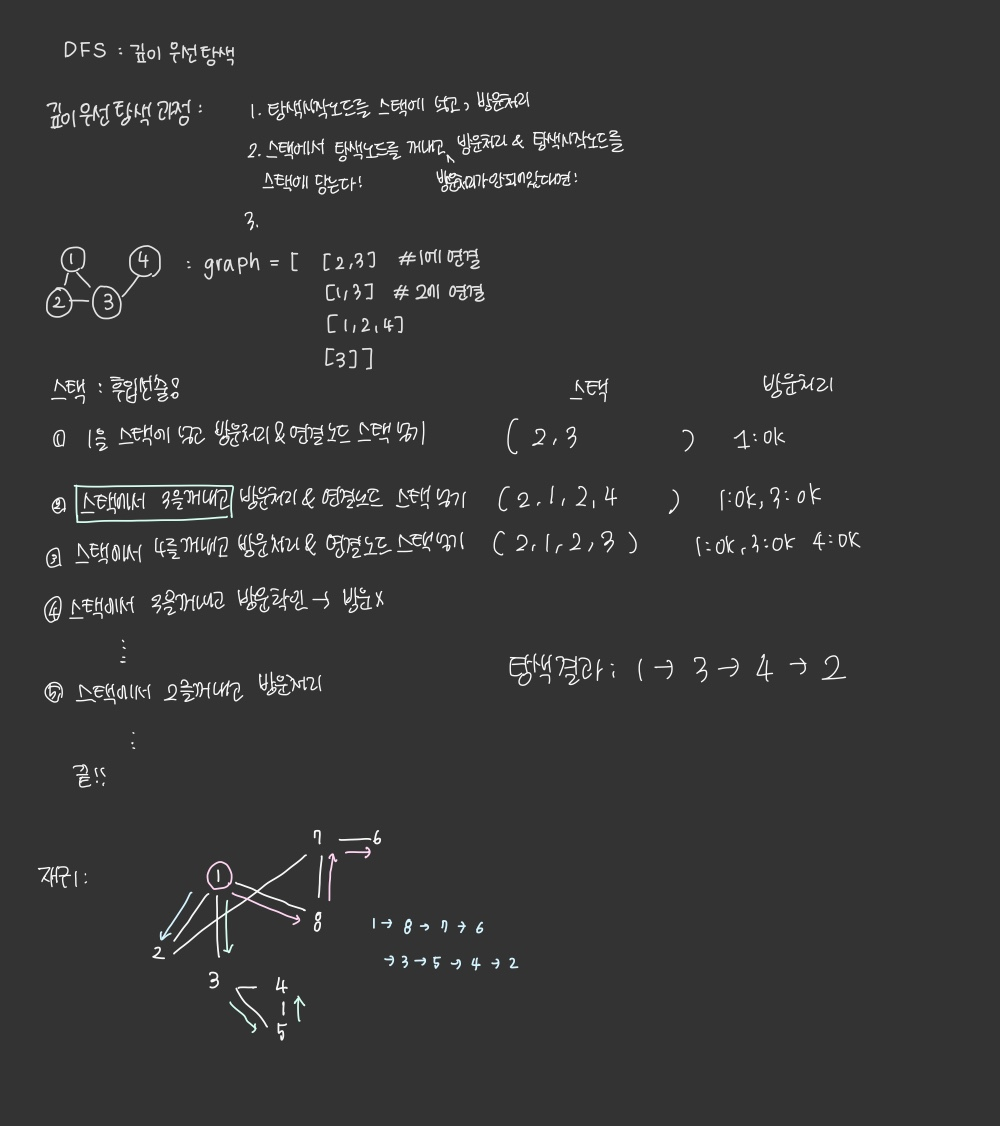 DFS : 깊이 우선 탐색
깊이 우선 탐색 과정 : 1. 탐색시작노드를 스택에 넣고, 방문처리
2. 스택에서 탐색노드를 꺼내고 방문처리 & 탐색시작노드를
스택에 담는다! 방문처리가 안되어있다면!
3.
1 4 : graph = [ [2,3] #1에 연결
2 3 [1,3] # 2에 연결
[1,2,4]
[3]]
스택 : 후입선출!! 스택 방문처리
① 1을 스택에 넣고 방문처리 & 연결노드 스택 넣기 ( 2,3 ) 1:ok
② 스택에서 3을꺼내고 방문처리 & 연결노드 스택넣기 ( 2,1,2,4 ) 1:ok, 3:ok
③ 스택에서 4를꺼내고 방문처리 & 연결노드 스택넣기 ( 2,1,2,3 ) 1:ok, 3:ok 4:ok
④ 스택에서 3을꺼내고 방문확인 → 방문x
⋮
탐색결과 : 1 → 3 → 4 → 2
⑤ 스택에서 2를꺼내고 방문처리
⋮
끝!!
7 6
1
8
1 → 8 → 7 → 6
2
→ 3 → 5 → 4 → 2
3 4
5